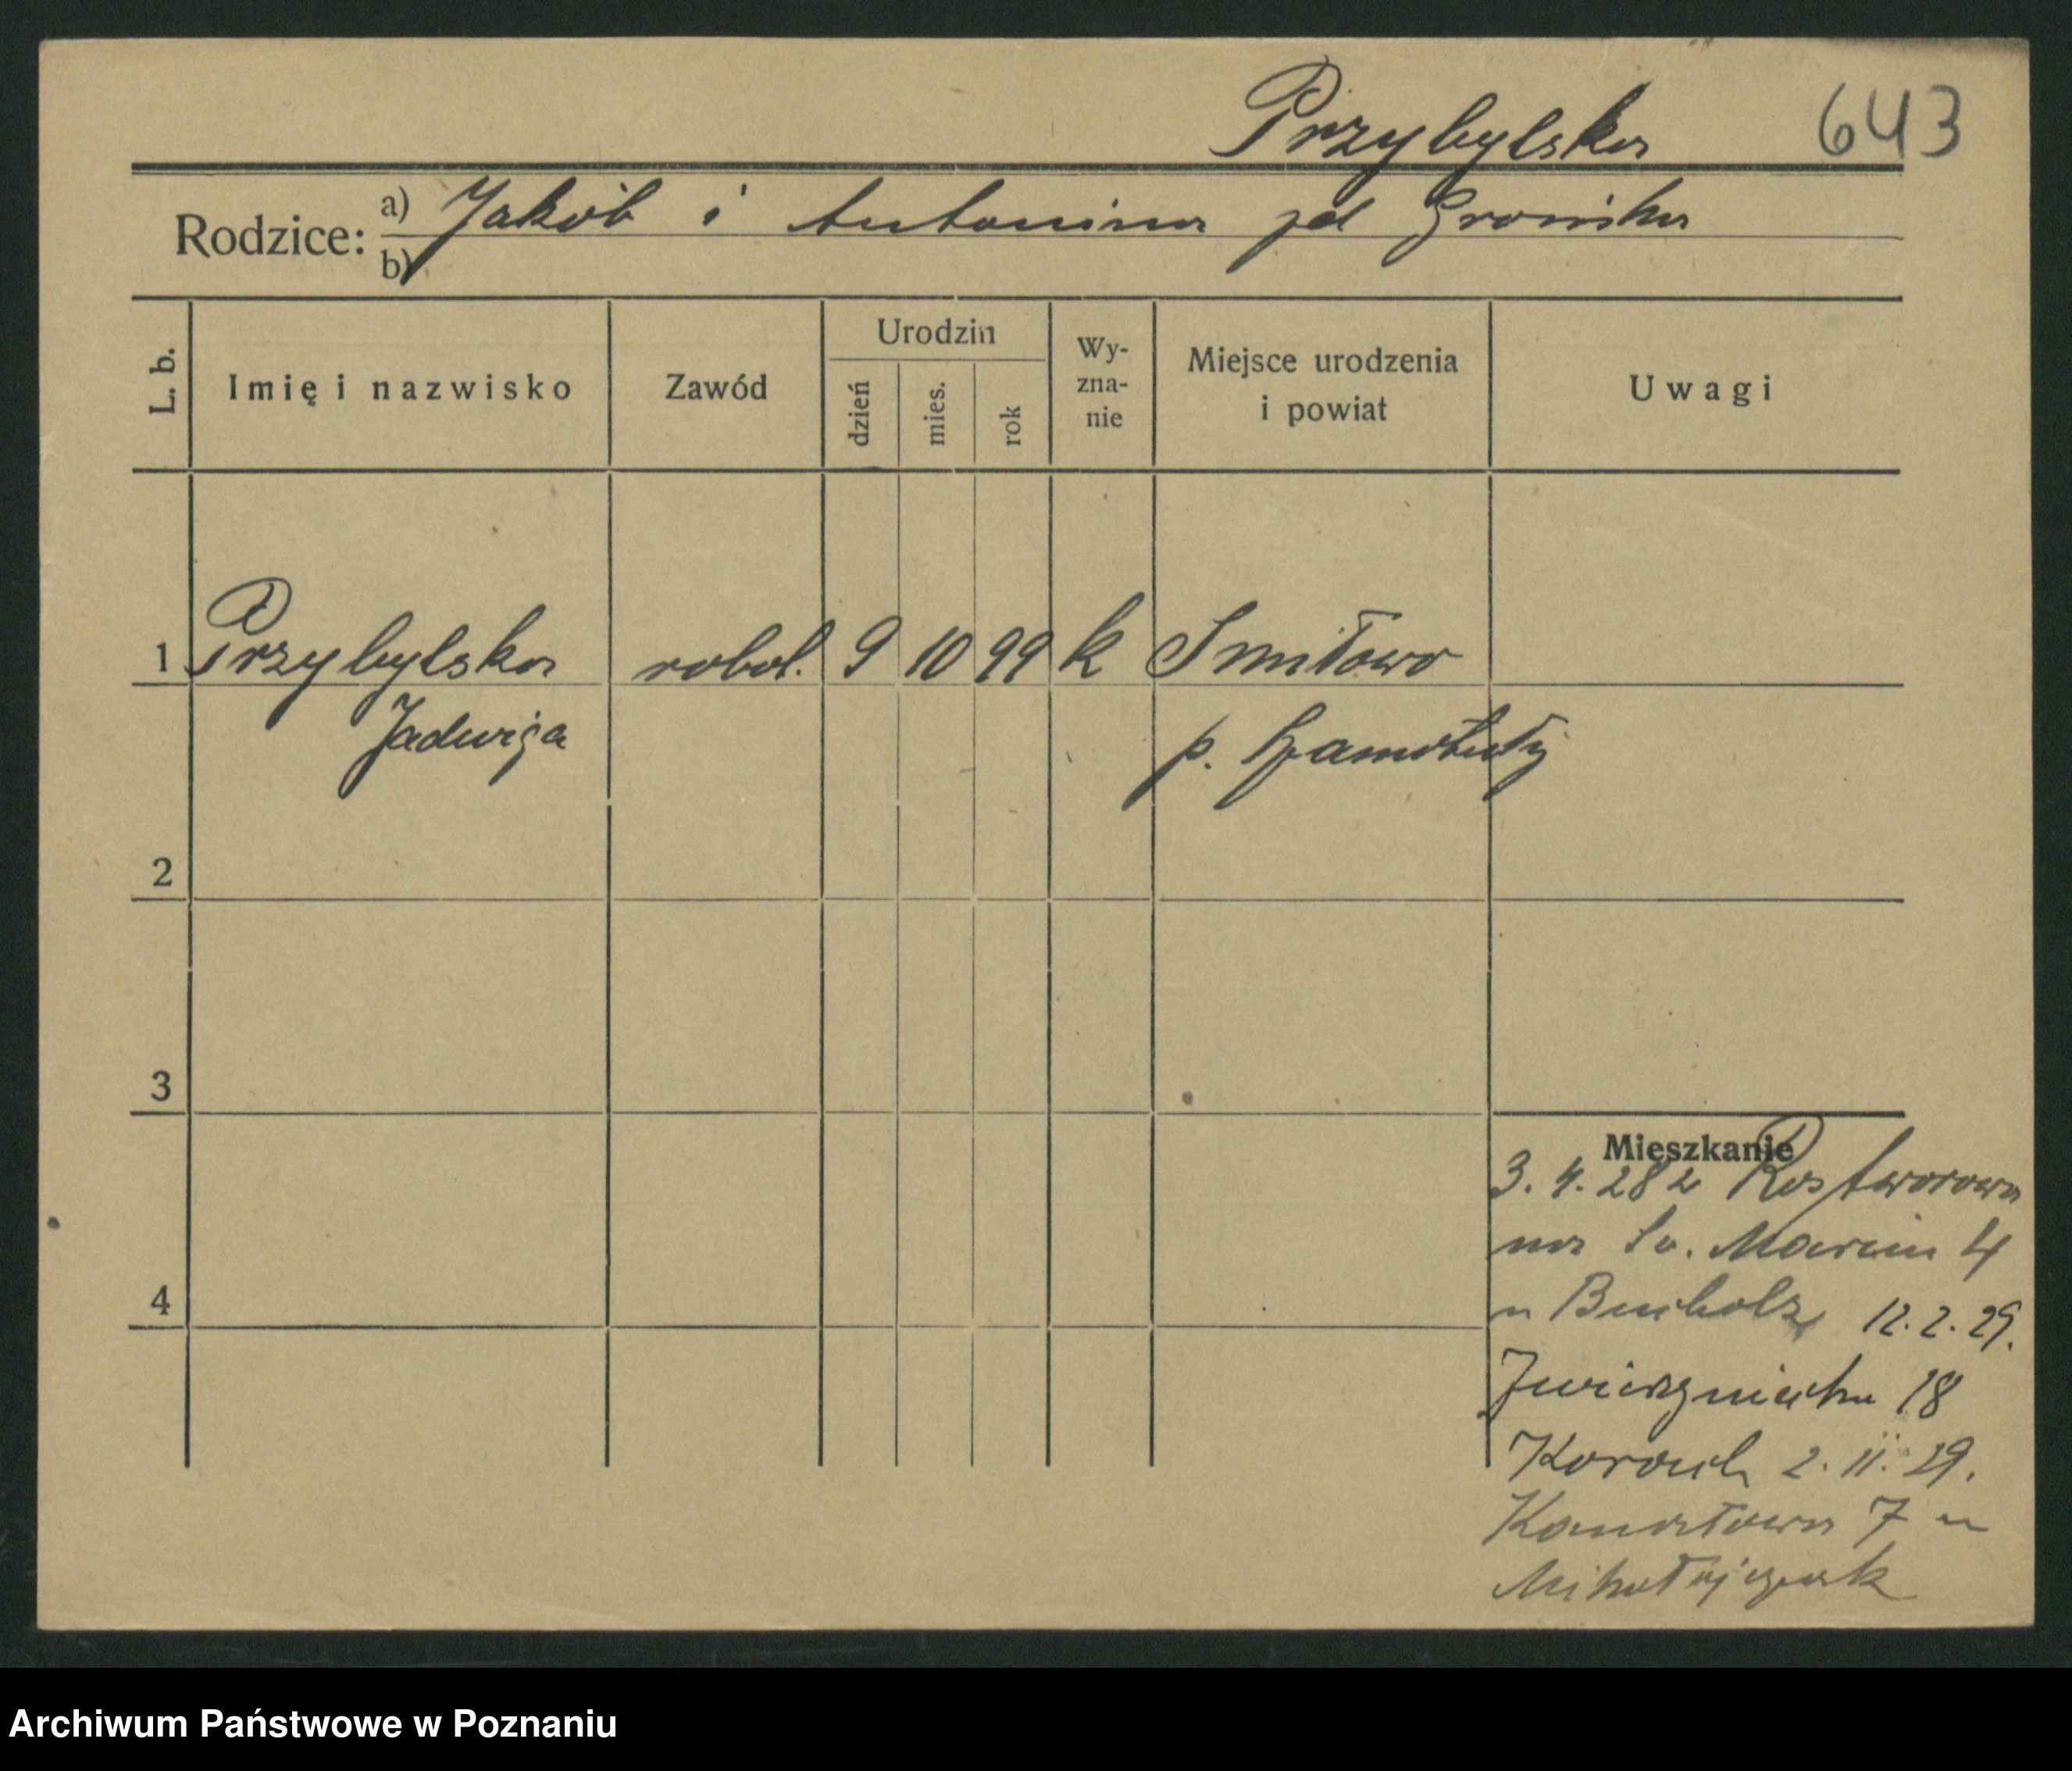 Przybylska 643
Rodzice: a) Jakób i Antonina zd
b)
L. b.
Imię i nazwisko
Zawód
Urodzin
dzień
mies.
rok
Wy-
zna-
nie
Miejsce urodzenia
i powiat
Uwagi
1 Przybylska robot. 9 10 99 k Smiłowo
Jadwiga p. Szamotuły
2
3
4
Mieszkanie
3. 4. 28 z Rostworowa
na Św. Marcin 4
u Bucholz 12. 2. 29.
Zwierzyniecka 18
2. 11. 29.
Kanałowa 7 u
Mikołajczak
Archiwum Państwowe w Poznaniu